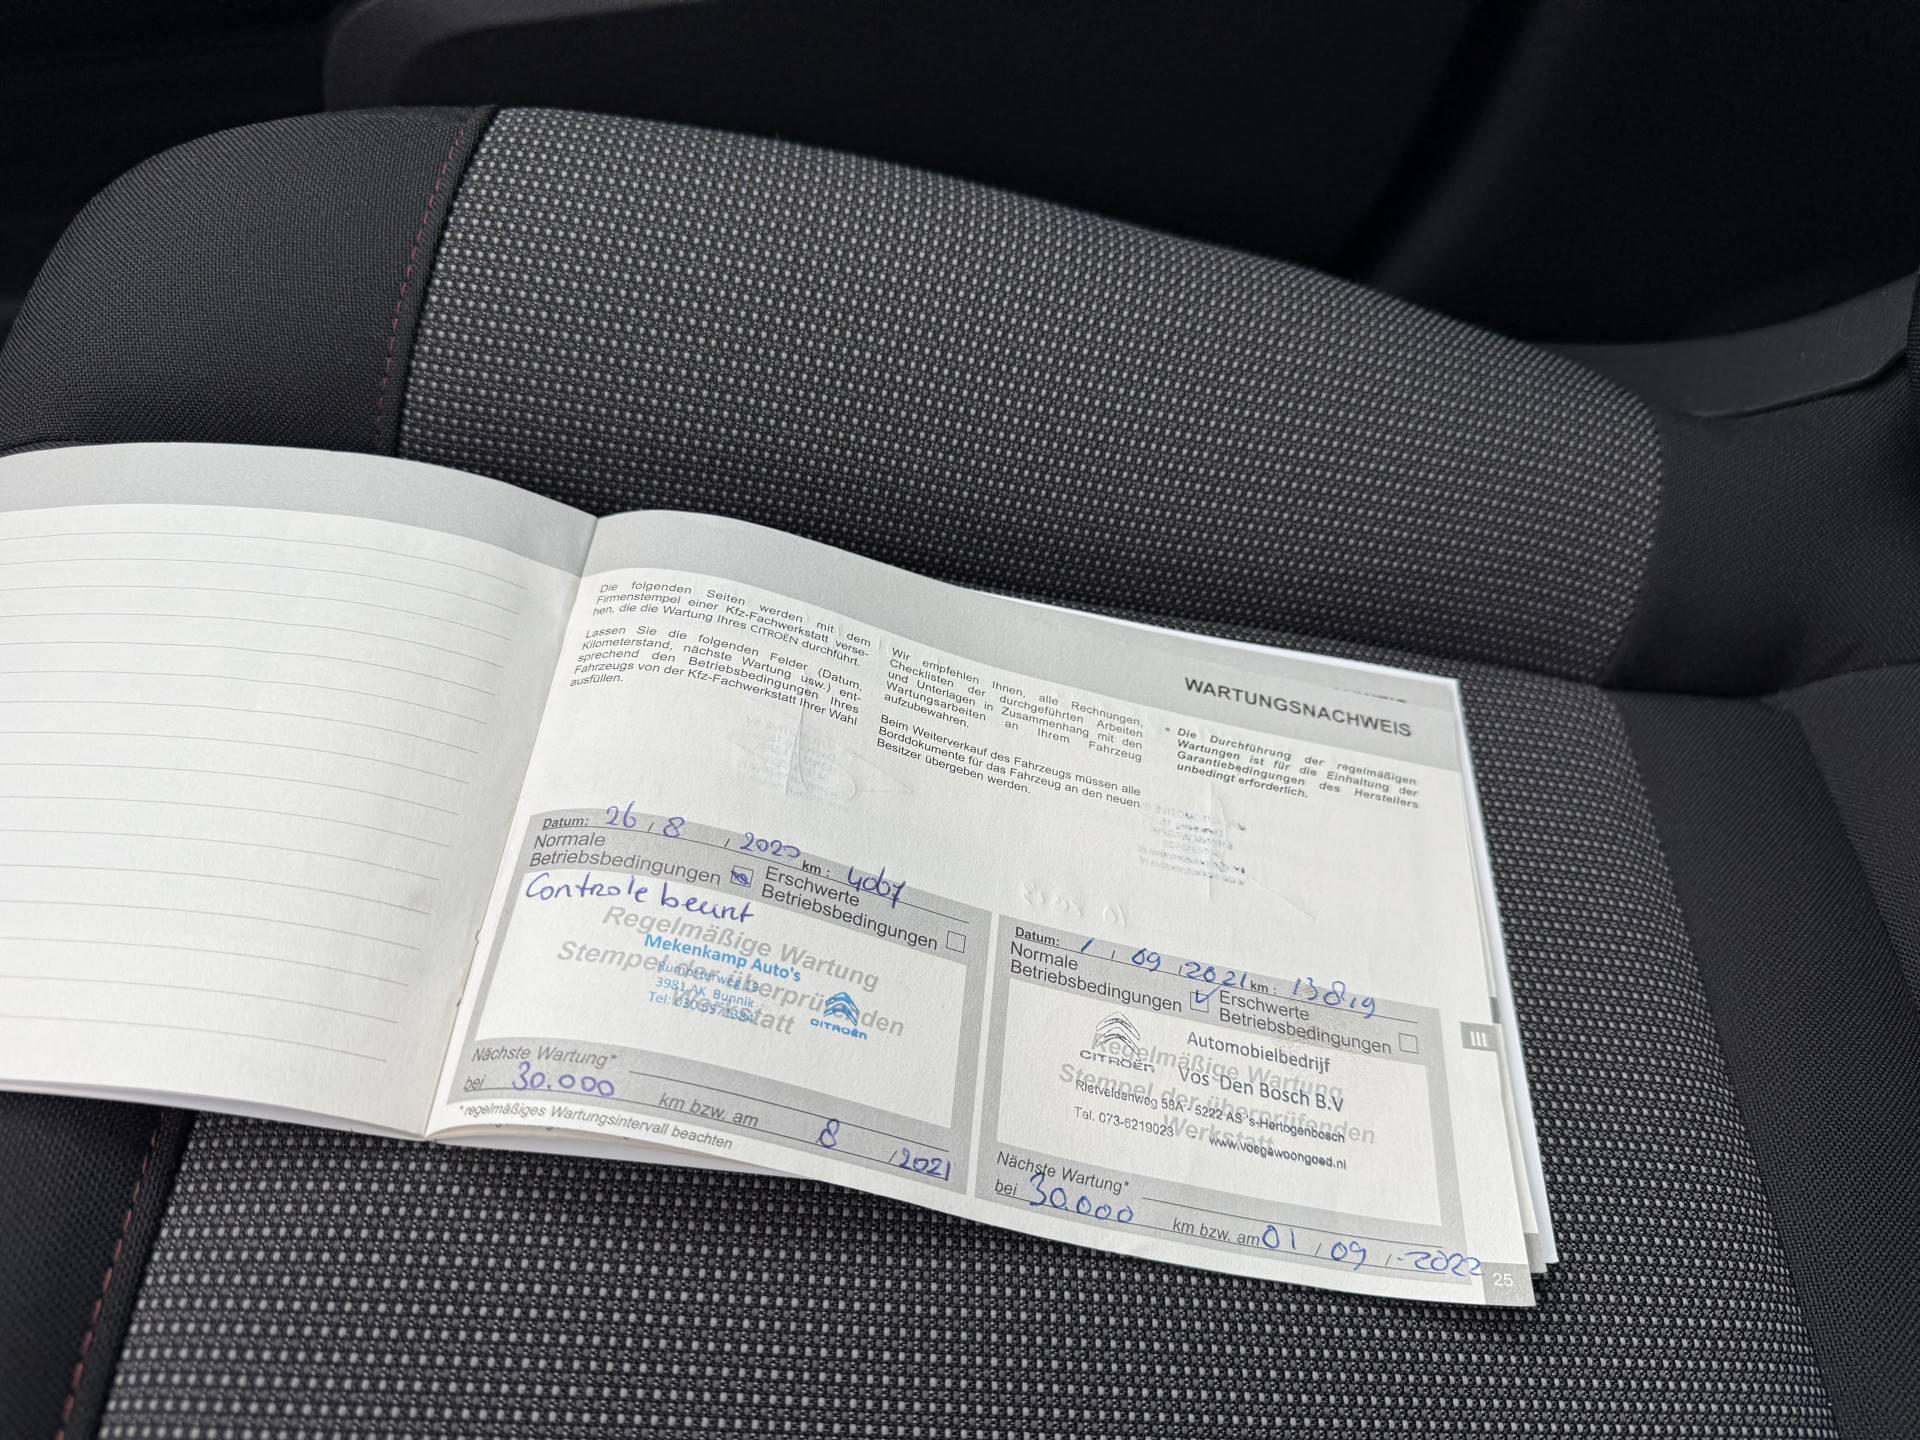 WARTUNGSNACHWEIS
Die folgenden Seiten werden mit dem
Firmenstempel einer Kfz-Fachwerkstatt verse-
hen, die die Wartung Ihres CITROËN durchführt.
Lassen Sie die folgenden Felder (Datum,
Kilometerstand, nächste Wartung usw.) ent-
sprechend den Betriebsbedingungen Ihres
Fahrzeugs von der Kfz-Fachwerkstatt Ihrer Wahl
ausfüllen.
Wir empfehlen Ihnen, alle Rechnungen,
Checklisten der durchgeführten Arbeiten
und Unterlagen in Zusammenhang mit den
Wartungsarbeiten an Ihrem Fahrzeug
aufzubewahren.
Beim Weiterverkauf des Fahrzeugs müssen alle
Borddokumente für das Fahrzeug an den neuen
Besitzer übergeben werden.
* Die Durchführung der regelmäßigen
Wartungen ist für die Einhaltung der
Garantiebedingungen des Herstellers
unbedingt erforderlich.
Datum: 26 / 8 / 2020 km : 4067
Normale
Betriebsbedingungen
Erschwerte
Betriebsbedingungen
Controle beurt
Regelmäßige Wartung
Stempel der überprüfenden
Werkstatt
Mekenkamp Auto's
Rumpsterweg 19
3981 AK Bunnik
Tel: 030
CITROËN
Nächste Wartung*
bei 30.000 km bzw. am 8 / 2021
*regelmäßiges Wartungsintervall beachten
Datum: 1 / 09 / 2021 km : 13819
Normale
Betriebsbedingungen
Erschwerte
Betriebsbedingungen
Regelmäßige Wartung
Stempel der überprüfenden
Werkstatt
CITROËN
Automobielbedrijf
Vos Den Bosch B.V
Rietveldenweg 58A - 5222 AS 's-Hertogenbosch
Tel. 073-6219023 - www.vosgewoongoed.nl
Nächste Wartung*
bei 30.000 km bzw. am 01 / 09 / 2022
III
25